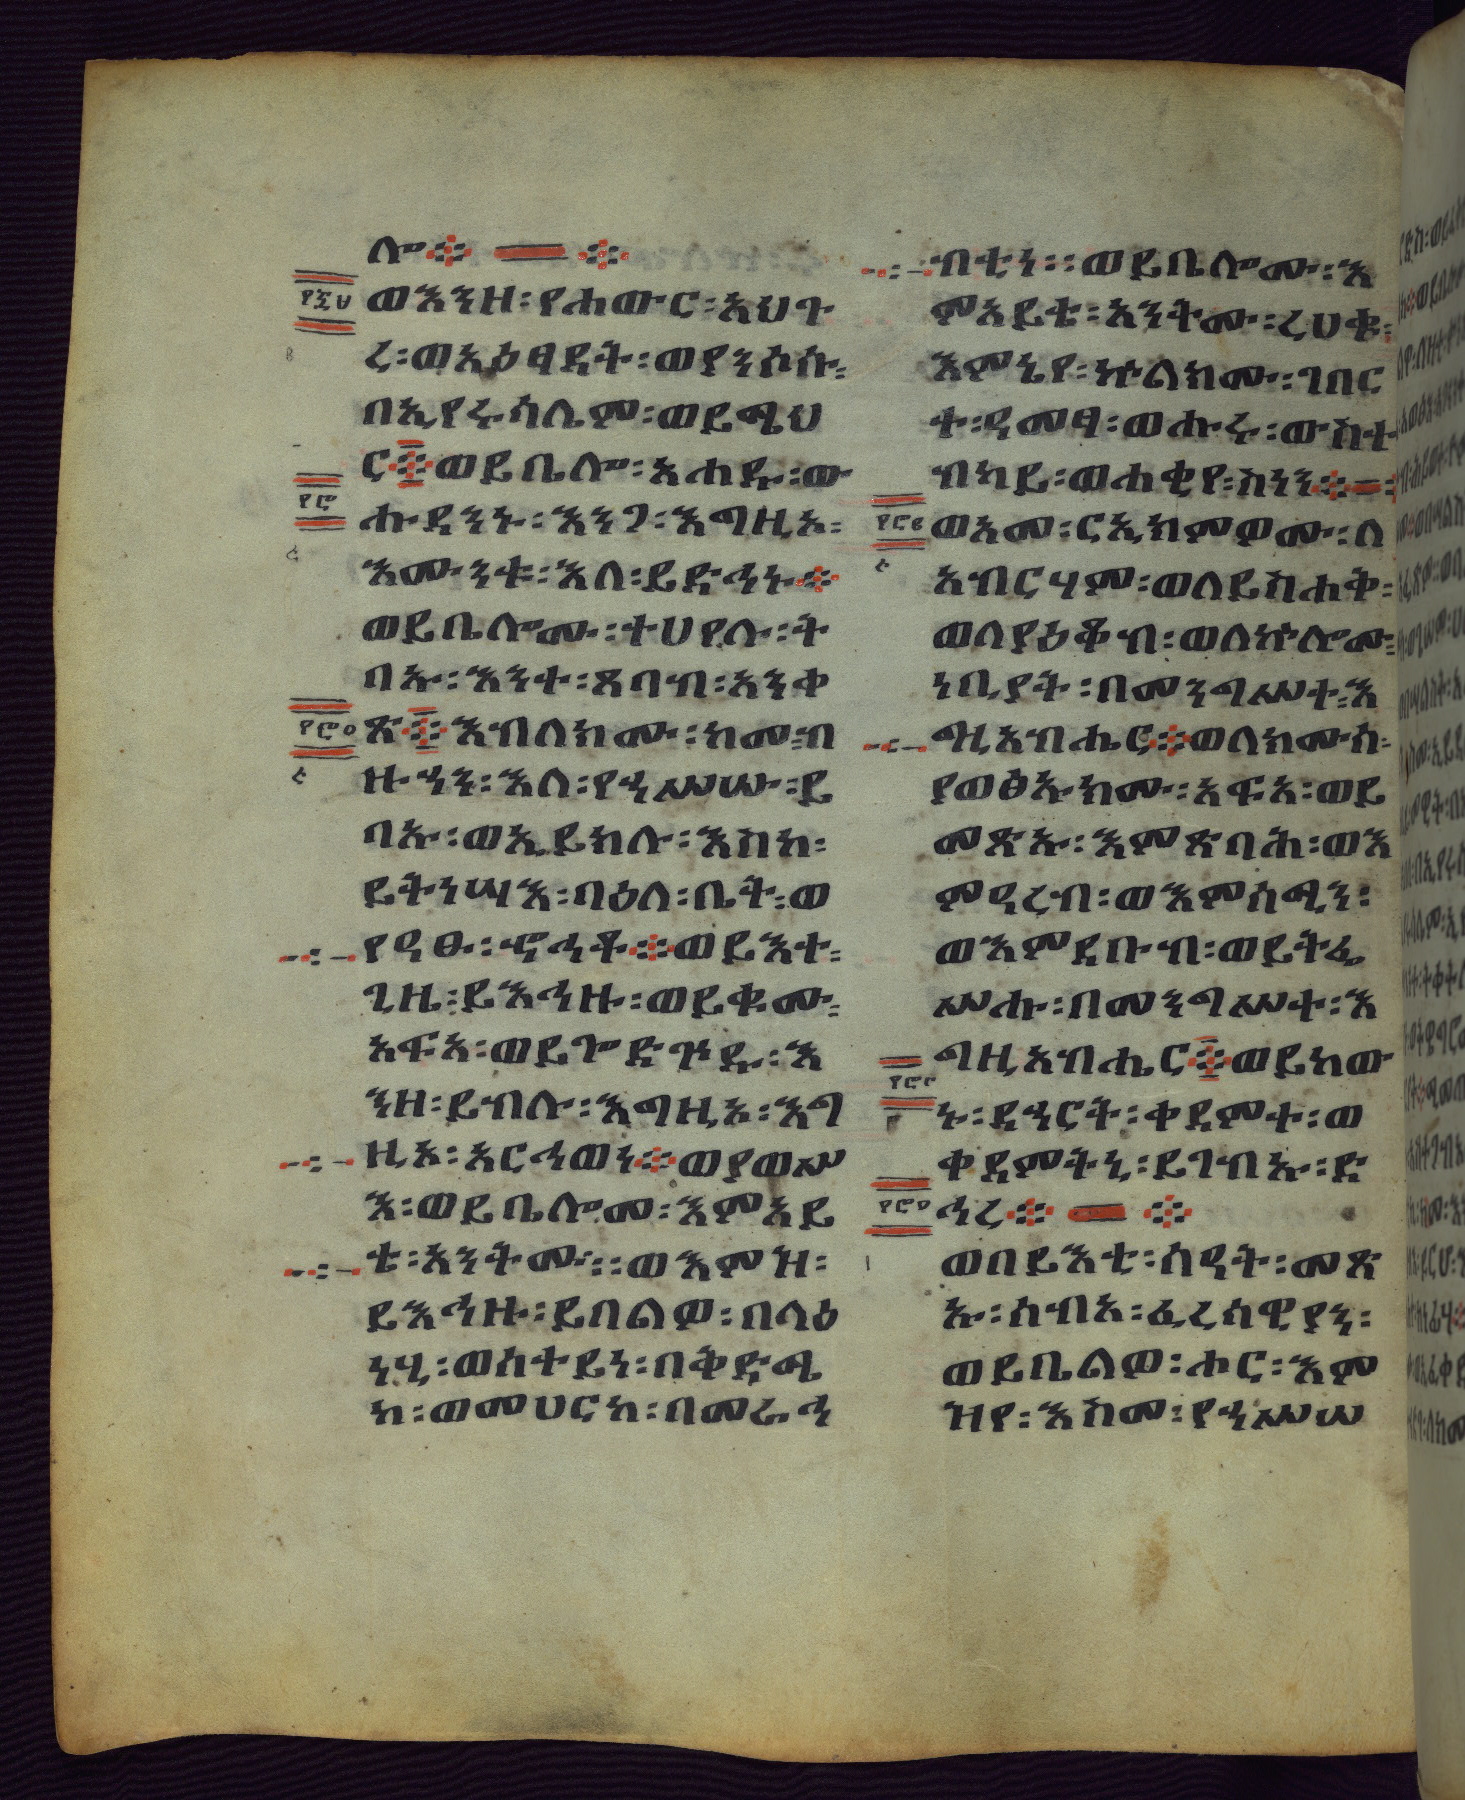 ሎ፨ ፨
ወእንዘ፡የሐውር፡አህጉ
ረ፡ወአዕፃዳት፡ወየንሶሱ፡
በኢየሩሳሌም፡ወይሜህ
ር፨ወይቤሎ፡አሐዱ፡ው
ሑዳንኑ፡እንጋ፡እግዚኦ፡
እሙንቱ፡እለ፡ይድኅኑ፨
ወይቤሎሙ፡ተሀየሉ፡ት
ባኡ፡እንተ፡ጸባብ፡አንቀ
ጽ፨እብለክሙ፡ከመ፡በ
ዙኃን፡እለ፡የኃሥሡ፡ይ
ባኡ፡ወኢይክሉ፡እስከ፡
ይትነሣእ፡በዕለ፡ቤት፡ወ
የዓፁ፡ኆኅቶ፨ወይእተ፡
ጊዜ፡ይእኅዙ፡ወይቁሙ፡
አፍአ፡ወይጐድጕዱ፡እ
ንዘ፡ይብሉ፡እግዚኦ፡እግ
ዚኦ፡አርኅወነ፨ወያወሥ
እ፡ወይቤሎሙ፡እምአይ
ቴ፡አንትሙ፡፡ወእምዝ፡
ይእኅዙ፡ይበልዎ፡በላዕ
ነሂ፡ወሰተይነ፡በቅድሜ
ከ፡ወመሀርከ፡በመራኅ
ብቲነ፡፡ወይቤሎሙ፡እ
ምአይቴ፡አንትሙ፡ረሀቁ፡
እምኔየ፡ኵልክሙ፡ገበር
ተ፡ዓመፃ፡ወሑሩ፡ውስተ
ብካይ፡ወሐቂየ፡ስነን፨
ወአመ፡ርኢክምዎሙ፡ለ
አብርሃም፡ወለይስሐቅ፡
ወለያዕቆብ፡ወለኵሎሙ፡
ነቢያት፡በመንግሥተ፡እ
ግዚአብሔር፨ወለክሙሰ፡
ያወፅኡክሙ፡አፍአ፡ወይ
መጽኡ፡እምጽባሕ፡ወእ
ምዓረብ፡ወእምሰሜን፡
ወእምደቡብ፡ወይትፌ
ሥሑ፡በመንግሥተ፡እ
ግዚአብሔር፨ወይከው
ኑ፡ደኃርት፡ቀደምተ፡ወ
ቀደምትኒ፡ይገብኡ፡ድ
ኅረ፨ ፨
ወበይእቲ፡ሰዓት፡መጽ
ኡ፡ሰብአ፡ፈሪሳዊያን፡
ወይቤልዎ፡ሑር፡እም
ዝየ፡እስመ፡የኃሥሥ